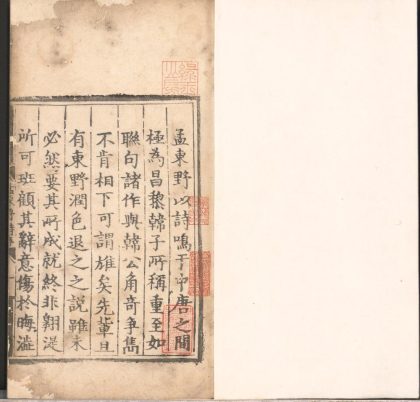 孟東野以詩鳴于中唐之間
極為昌黎韓子所稱重至如
聯句諸作與韓公角奇爭雋
不肯相下可謂雄矣先輩且
有東野潤色退之之說雖未
必然要其所成就終非翱湜
所可班顧其辭意傷於晦澁